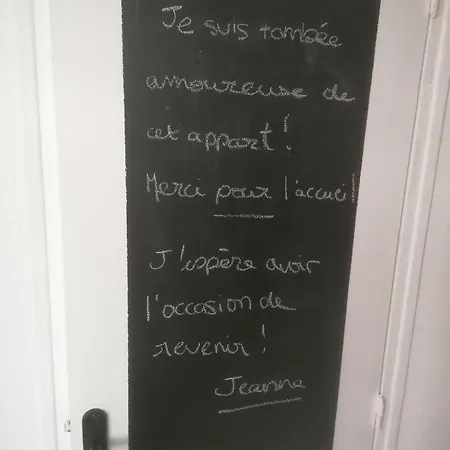 Je suis tombée
amoureuse de
cet appart !
Merci pour l'accueil
J'espère avoir
l'occasion de
revenir !
Jeanne